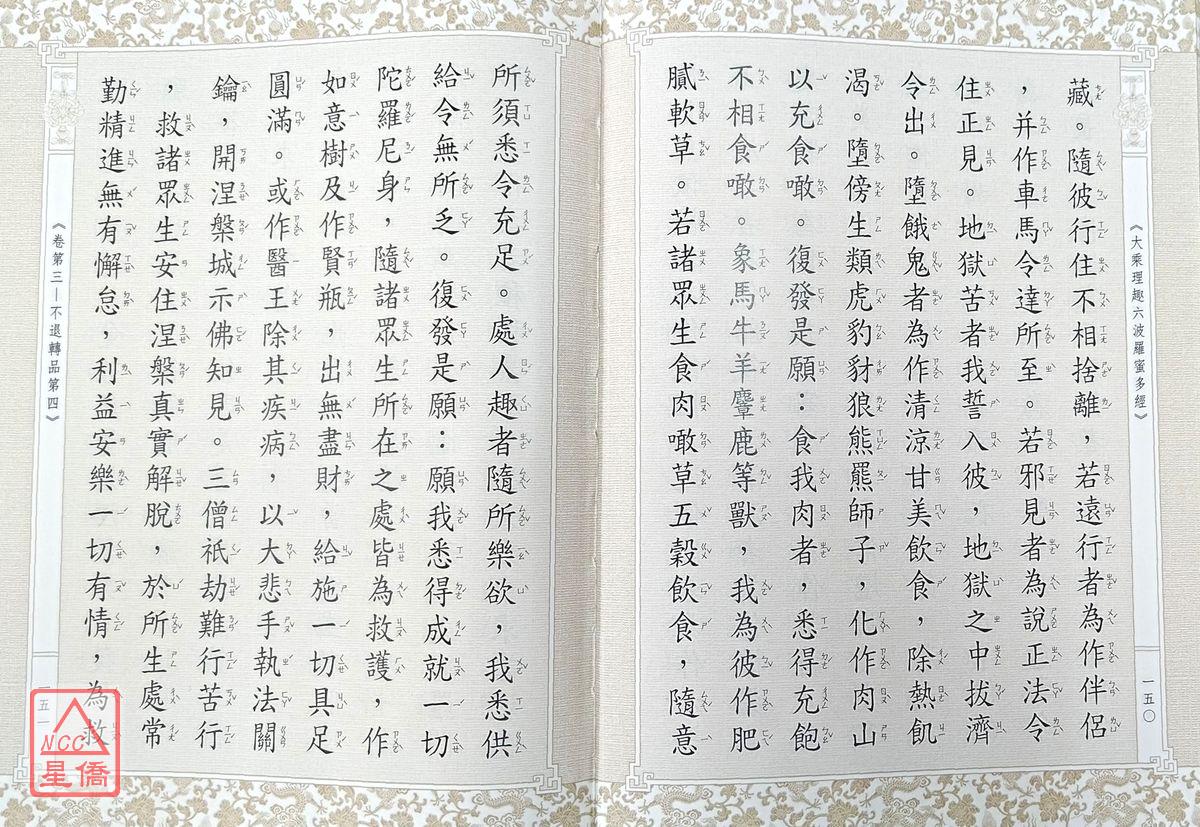 《大乘理趣六波羅蜜多經》
一五〇
藏。隨彼行住不相捨離，若遠行者為作伴侶
，并作車馬令達所至。若邪見者為說正法令
住正見。地獄苦者我誓入彼，地獄之中拔濟
令出。墮餓鬼者為作清涼甘美飲食，除熱飢
渴。墮傍生類虎豹豺狼熊羆師子，化作肉山
以充食噉。復發是願：食我肉者，悉得充飽
不相食噉。象馬牛羊麞鹿等獸，我為彼作肥
膩軟草。若諸眾生食肉噉草五穀飲食，隨意
所須悉令充足。處人趣者隨所樂欲，我悉供
給令無所乏。復發是願：願我悉得成就一切
陀羅尼身，隨諸眾生所在之處皆為救護，作
如意樹及作賢瓶，出無盡財，給施一切具足
圓滿。或作醫王除其疾病，以大悲手執法關
鑰，開涅槃城示佛知見。三僧祇劫難行苦行
，救諸眾生安住涅槃真實解脫，於所生處常
勤精進無有懈怠，利益安樂一切有情，為救
《卷第三－不退轉品第四》
一五一
NCC
星僑